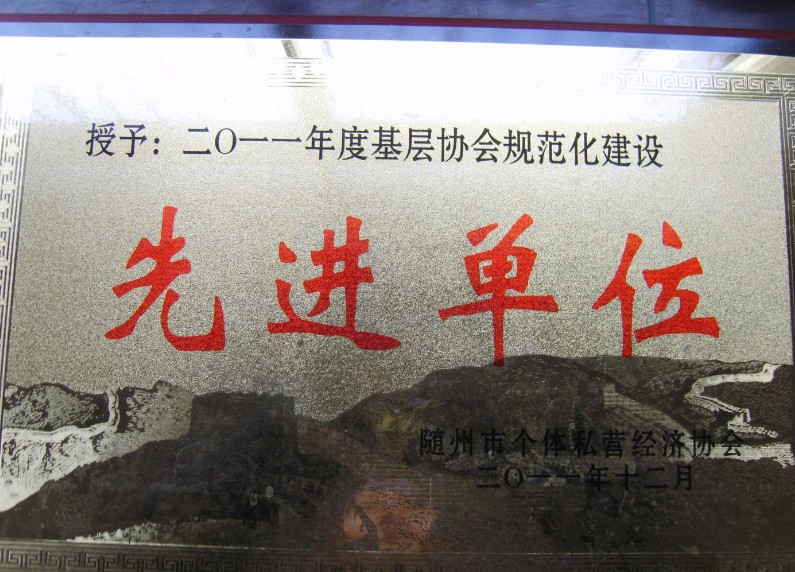 授予：二〇一一年度基层协会规范化建设
先进单位
随州市个体私营经济协会
二〇一一年十二月